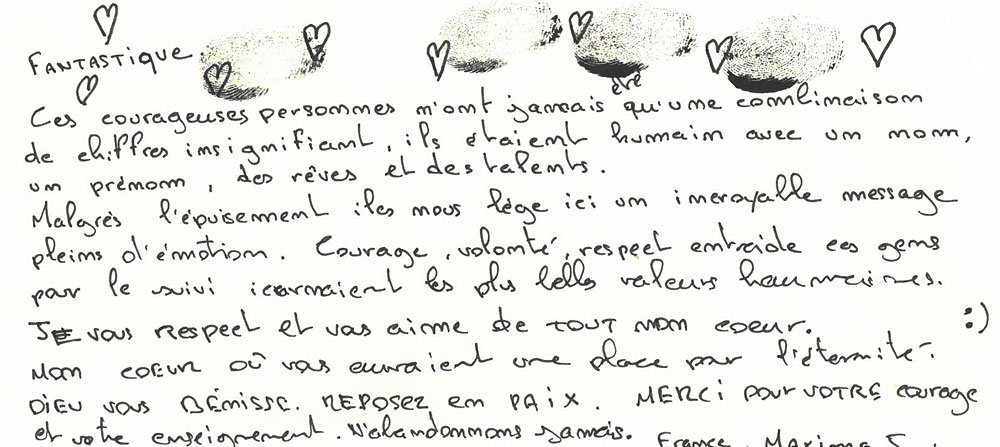 FANTASTIQUE.
Ces courageuses personnes n'ont jamais été qu'une combinaison
de chiffres insignifiant, ils étaient humain avec un nom,
un prénom, des rêves et des talents.
Malgrès l'épuisement iles nous lège ici un incroyable message
pleins d'émotion. Courage, volonté, respect entraide ces gens
par le suivi icarnaient les plus belles valeurs haumaines.
JE vous RESPECT et vas aime de TOUT MON COEUR. :)
MON COEUR OÙ vas auraient une place par l'éternité.
DIEU vous BÉNISSE. REPOSEZ en PAIX. MERCI POUR VOTRE courage
et votre enseignement. N'abandonnons jamais. France. Maxime